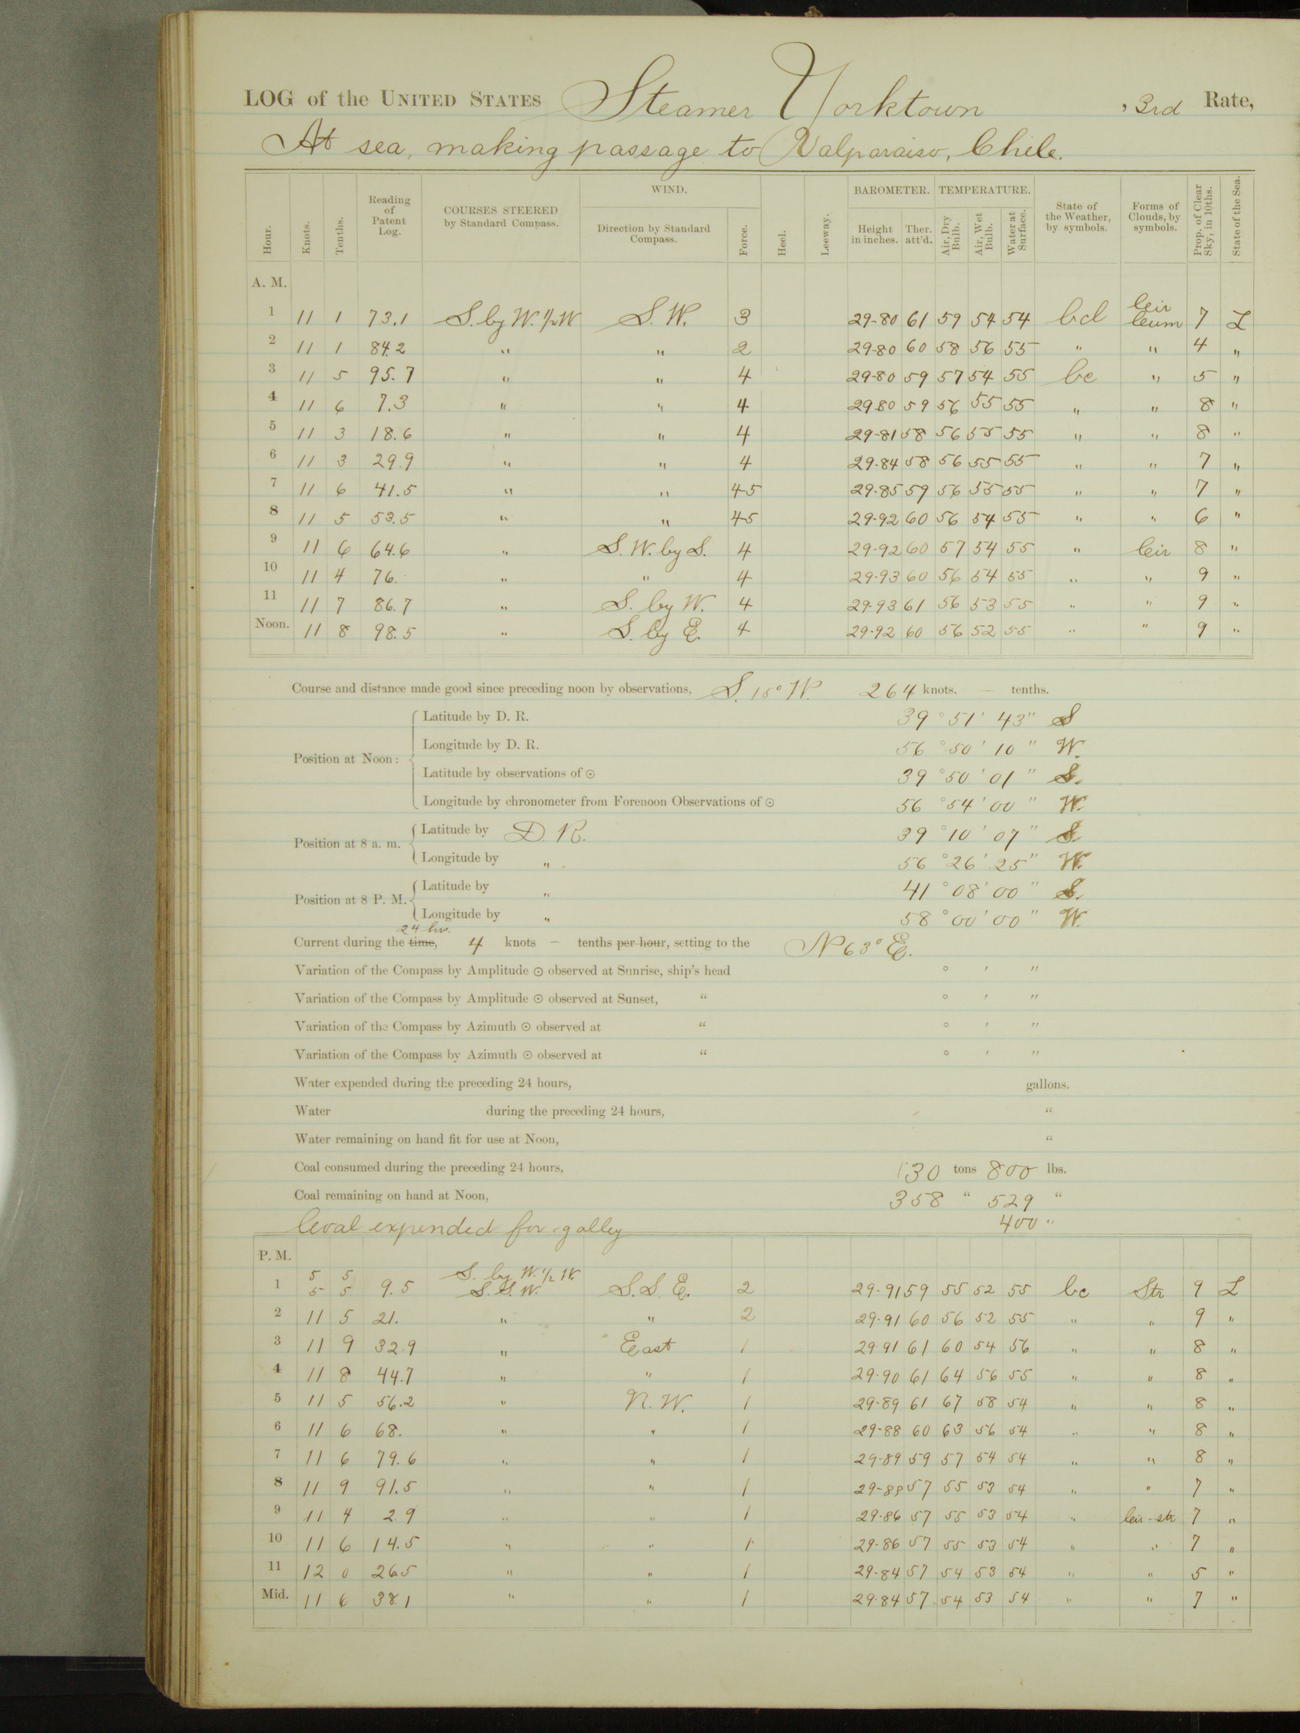 LOG of the UNITED STATES Steamer Yorktown , 3rd Rate,
At sea, making passage to Valparaiso, Chile.
Hour. Knots. Tenths. Reading of Patent Log. COURSES STEERED by Standard Compass. WIND. Direction by Standard Compass. Force. Heel. Leeway. BAROMETER. Height in inches. Ther. att'd. TEMPERATURE. Air, Dry Bulb. Air, Wet Bulb. Water at Surface. State of the Weather, by symbols. Forms of Clouds, by symbols. Prop. of Clear Sky, in 10ths. State of the Sea.
A. M.
1 11 1 73.1 S. by W. 1/2 W S. W. 3 29-80 61 59 54 54 bcd Cir Cum 7 L
2 11 1 84.2 " " 2 29-80 60 58 56 55 " " 4 "
3 11 5 95.7 " " 4 29-80 59 57 54 55 bc " 5 "
4 11 6 7.3 " " 4 29.80 59 56 55 55 " " 8 "
5 11 3 18.6 " " 4 29-81 58 56 55 55 " " 8 "
6 11 3 29.9 " " 4 29.84 58 56 55 55 " " 7 "
7 11 6 41.5 " " 4-5 29.85 59 56 55 55 " " 7 "
8 11 5 53.5 " " 4-5 29-92 60 56 54 55 " " 6 "
9 11 6 64.6 " S. W. by S. 4 29-92 60 57 54 55 " Cir 8 "
10 11 4 76. " " 4 29-93 60 56 54 55 " " 9 "
11 11 7 86.7 " S. by W. 4 29-93 61 56 53 55 " " 9 "
Noon. 11 8 98.5 " S. by E. 4 29-92 60 56 52 55 " " 9 "
Course and distance made good since preceding noon by observations, S. 15° W. 264 knots. — tenths.
Position at Noon: Latitude by D. R. 39° 51' 43" S
Longitude by D. R. 56° 50' 10" W.
Latitude by observations of ☉ 39° 50' 01" S.
Longitude by chronometer from Forenoon Observations of ☉ 56° 54' 00" W.
Position at 8 a. m. Latitude by D. R. 39° 10' 07" S.
Longitude by " 56° 26' 25" W.
Position at 8 P. M. Latitude by " 41° 08' 00" S.
Longitude by " 58° 00' 00" W.
24 hrs.
Current during the time, 4 knots — tenths per hour, setting to the N 63° E.
Variation of the Compass by Amplitude ☉ observed at Sunrise, ship's head ° ' "
Variation of the Compass by Amplitude ☉ observed at Sunset, " ° ' "
Variation of the Compass by Azimuth ☉ observed at " ° ' "
Variation of the Compass by Azimuth ☉ observed at " ° ' "
Water expended during the preceding 24 hours, gallons.
Water during the preceding 24 hours, "
Water remaining on hand fit for use at Noon, "
Coal consumed during the preceding 24 hours, 30 tons 800 lbs.
Coal remaining on hand at Noon, 358 " 529 "
Coal expended for galley 400 "
P. M.
5 5 S. by W. 1/2 W.
1 5 5 9.5 S. S. W. S. S. E. 2 29-91 59 55 52 55 bc Str 9 L
2 11 5 21. " " 2 29-91 60 56 52 55 " " 9 "
3 11 9 32.9 " East 1 29.91 61 60 54 56 " " 8 "
4 11 8 44.7 " " 1 29-90 61 64 56 55 " " 8 "
5 11 5 56.2 " N. W. 1 29-89 61 67 58 54 " " 8 "
6 11 6 68. " " 1 29-88 60 63 56 54 " " 8 "
7 11 6 79.6 " " 1 29-89 59 57 54 54 " " 8 "
8 11 9 91.5 " " 1 29-88 57 55 53 54 " " 7 "
9 11 4 2.9 " " 1 29-86 57 55 53 54 " Cir-str 7 "
10 11 6 14.5 " " 1 29-86 57 55 53 54 " " 7 "
11 12 0 26.5 " " 1 29-84 57 54 53 54 " " 5 "
Mid. 11 6 38.1 " " 1 29-84 57 54 53 54 " " 7 "